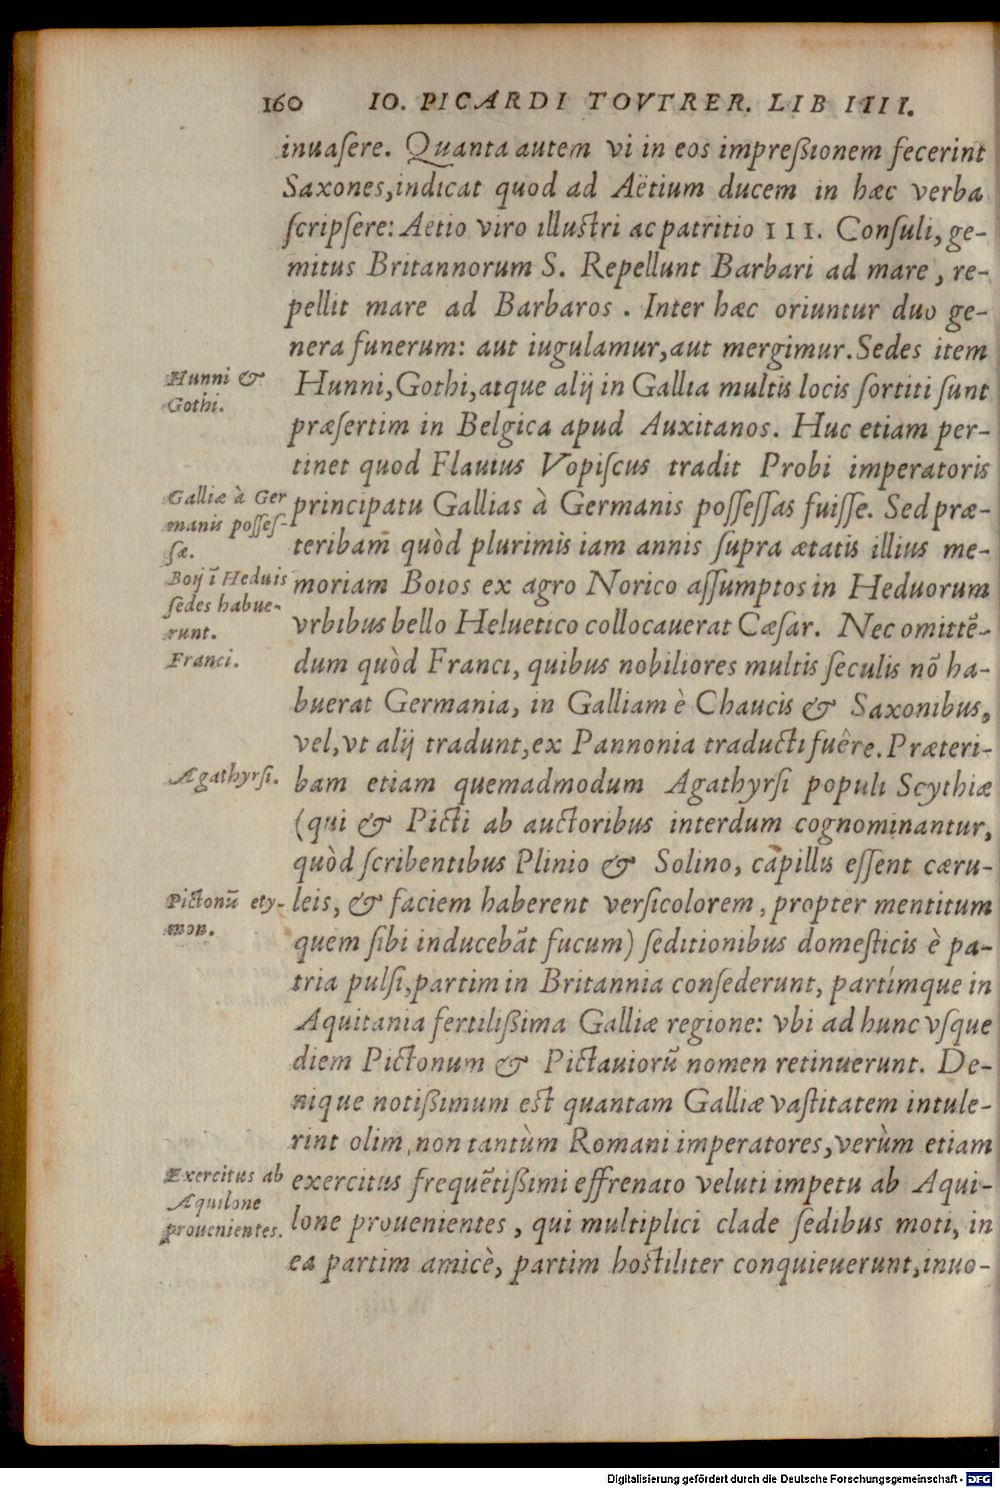 160 IO. PICARDI TOVTRER. LIB IIII.
inuaſere. Quanta autem vi in eos impreßionem fecerint
Saxones, indicat quod ad Aëtium ducem in hæc verba
ſcripſere: Aetio viro illuſtri ac patritio III. Conſuli, ge-
mitus Britannorum S. Repellunt Barbari ad mare, re-
pellit mare ad Barbaros. Inter hæc oriuntur duo ge-
nera funerum: aut iugulamur, aut mergimur. Sedes item
Hunni &
Gothi.
Hunni, Gothi, atque alij in Gallia multis locis ſortiti ſunt
præſertim in Belgica apud Auxitanos. Huc etiam per-
tinet quod Flauius Vopiſcus tradit Probi imperatoris
Galliæ à Ger
manis poſſeſ-
ſæ.
principatu Gallias à Germanis poſſeſſas fuiſſe. Sed præ-
teribam̃ quòd plurimis iam annis ſupra ætatis illius me-
Boij ĩ Heduis
ſedes habue-
runt.
moriam Boios ex agro Norico aſſumptos in Heduorum
vrbibus bello Heluetico collocauerat Cæſar. Nec omittẽ-
Franci.
dum quòd Franci, quibus nobiliores multis ſeculis nõ ha-
buerat Germania, in Galliam è Chaucis & Saxonibus,
vel, vt alij tradunt, ex Pannonia traducti fuêre. Præteri-
Agathyrſi.
bam etiam quemadmodum Agathyrſi populi Scythiæ
(qui & Picti ab auctoribus interdum cognominantur,
quòd ſcribentibus Plinio & Solino, capillis eſſent cæru-
Pictonũ ety-
mon.
leis, & faciem haberent verſicolorem, propter mentitum
quem ſibi inducebãt fucum) ſeditionibus domeſticis è pa-
tria pulſi, partim in Britannia conſederunt, partímque in
Aquitania fertilißima Galliæ regione: vbi ad hunc vſque
diem Pictonum & Pictauiorũ nomen retinuerunt. De-
nique notißimum eſt quantam Galliæ vaſtitatem intule-
rint olim, non tantùm Romani imperatores, verùm etiam
Exercitus ab
Aquilone
prouenientes.
exercitus frequẽtißimi effrenato veluti impetu ab Aqui-
lone prouenientes, qui multiplici clade ſedibus moti, in
ea partim amicè, partim hoſtiliter conquieuerunt, inuo-
Digitalisierung gefördert durch die Deutsche Forschungsgemeinschaft - DFG